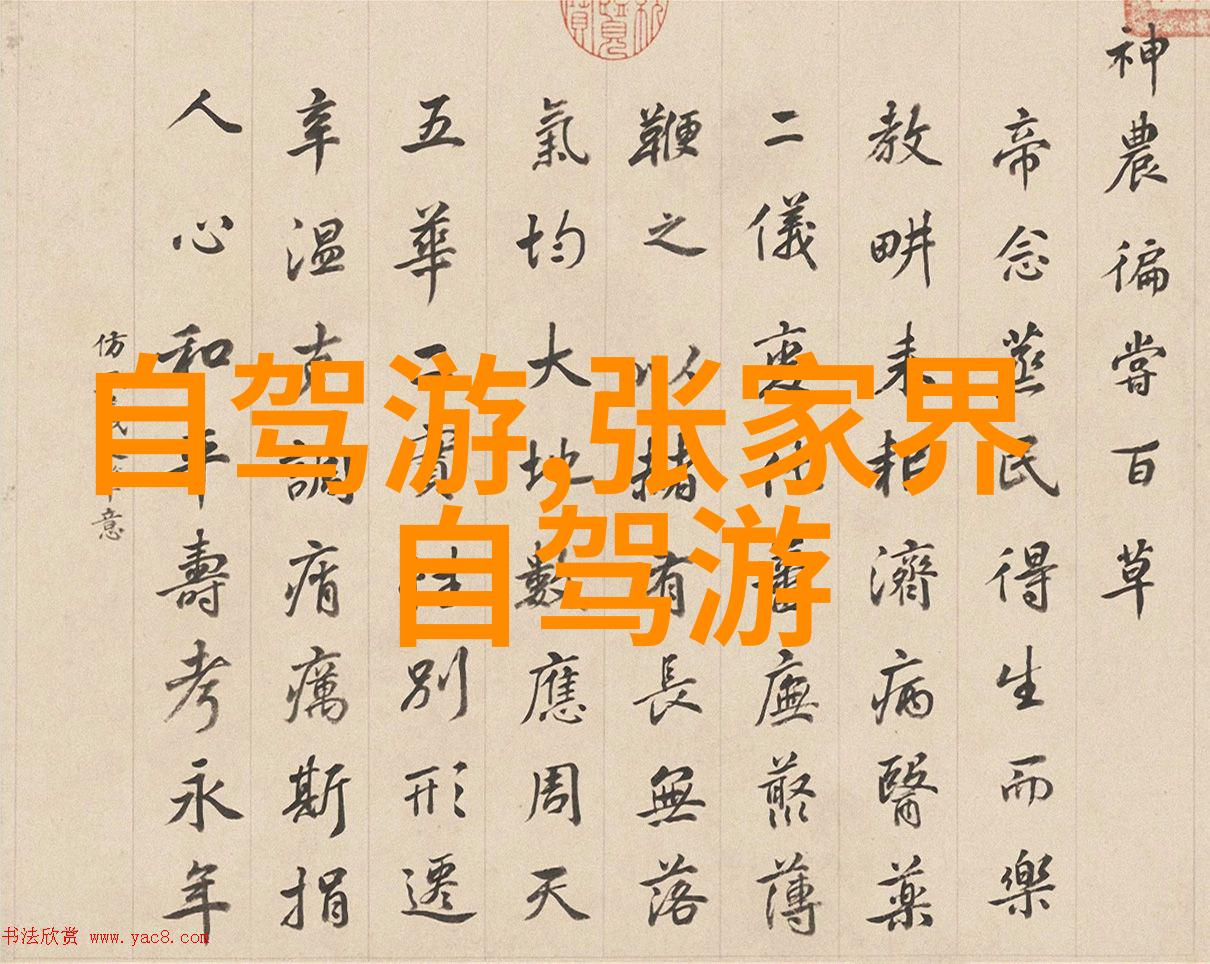 自驾游,张家界
自驾游
神農徧嘗百草
帝念蒸民得生而樂
教畊耒耜濟病醫藥
二儀化廡藂薄
鞭之以赭有長無落
氣均大地數應周天
五華別形遷
辛温調痟癘斯捐
人心和平壽考永年
仿意
书法欣赏 www.yac8.com